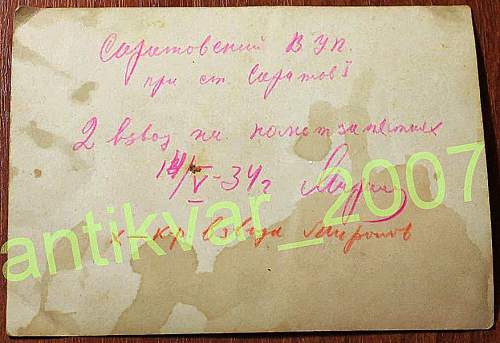 Саратовский В.У.П.
при ст. Саратов I
2 взвод на полит занятиях
14/V-34 г
х - к-р взвода Миронов
antikvar_2007